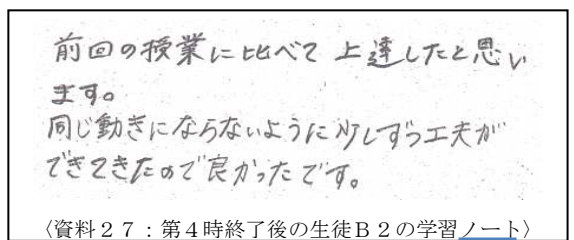 前回の授業に比べて上達したと思い
ます。
同じ動きにならないように少しずつ工夫が
できてきたので良かったです。
〈資料２７：第４時終了後の生徒Ｂ２の学習ノート〉